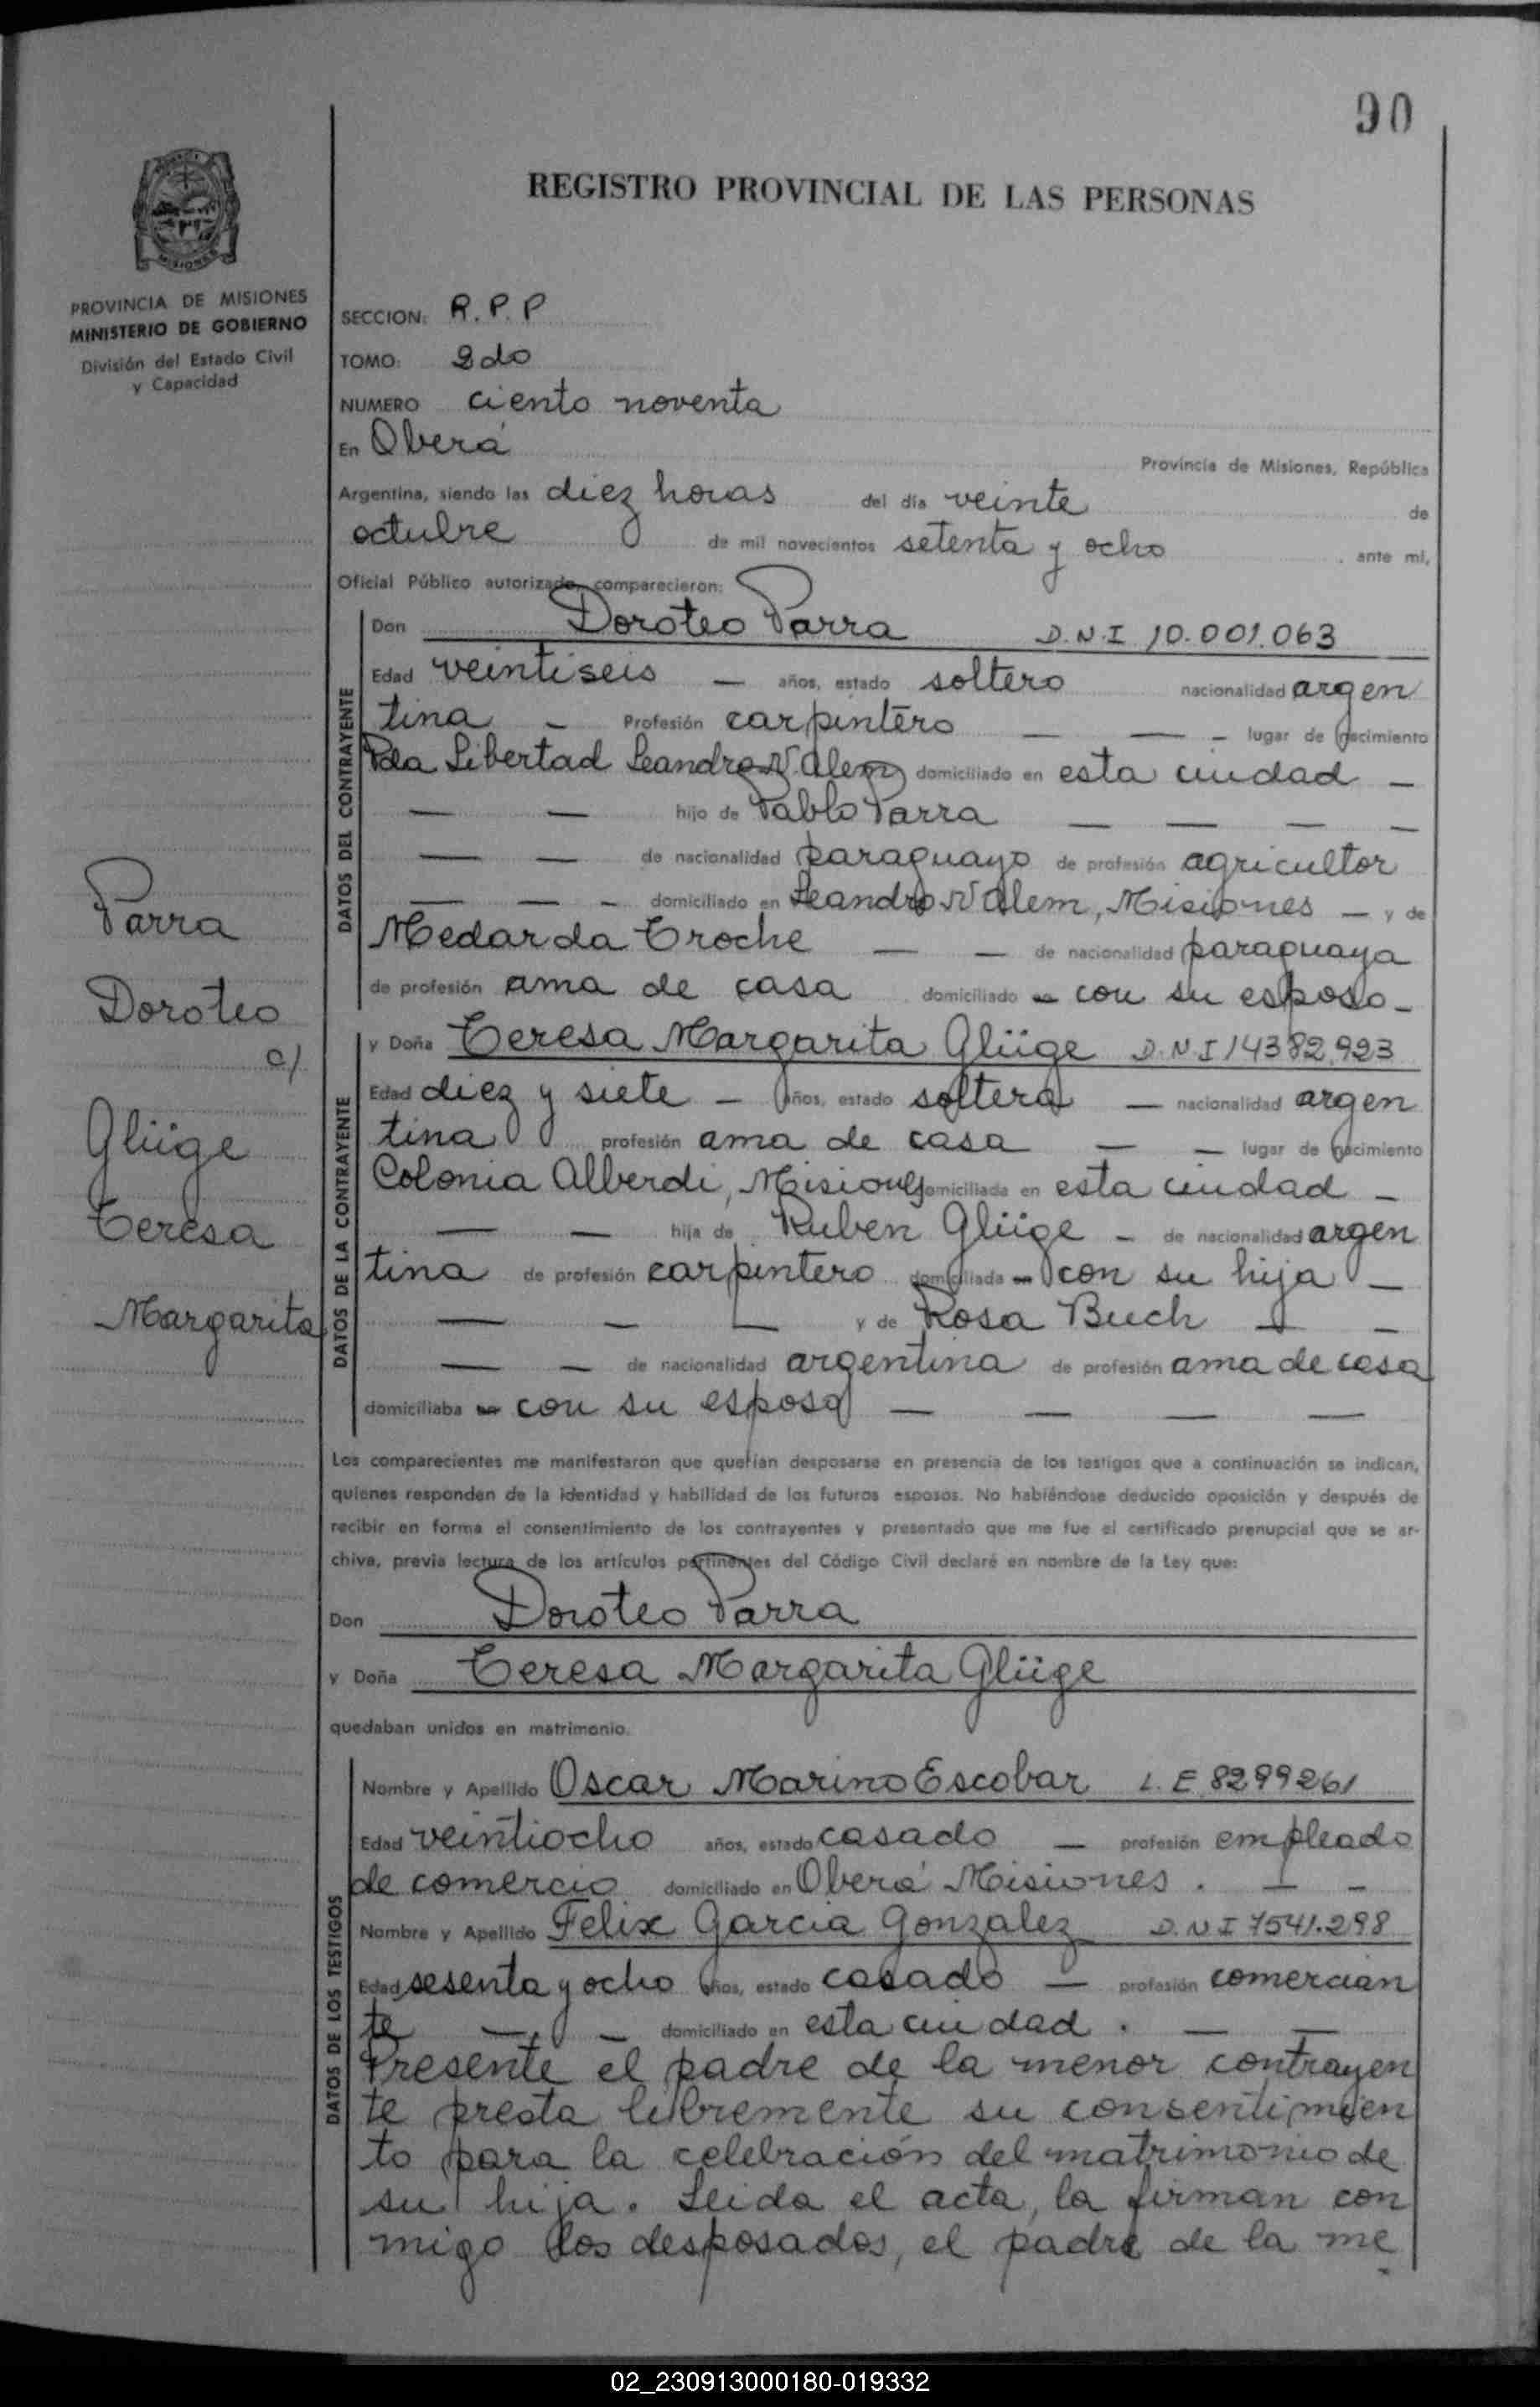 90
REGISTRO PROVINCIAL DE LAS PERSONAS
MISIONES
PROVINCIA DE MISIONES
MINISTERIO DE GOBIERNO
División del Estado Civil
y Capacidad
SECCION: R.P.P
TOMO: 2do
NUMERO ciento noventa
En Oberá Provincia de Misiones, República
Argentina, siendo las diez horas del día veinte de
octubre de mil novecientos setenta y ocho ante mí,
Oficial Público autorizado, comparecieron:
DATOS DEL CONTRAYENTE
Don Doroteo Parra D.N.I 10.001.063
Edad veintiseis — años, estado soltero nacionalidad argen
tina — Profesión carpintero — — — lugar de nacimiento
Pda Libertad Leandro N. Alem domiciliado en esta ciudad —
— — hijo de Pablo Parra — — — —
— — de nacionalidad paraguayo de profesión agricultor
— — — domiciliado en Leandro N Alem, Misiones — y de
Medarda Troche — — de nacionalidad paraguaya
de profesión ama de casa domiciliado en con su esposo —
DATOS DE LA CONTRAYENTE
y Doña Teresa Margarita Glüge D.N.I 14382.923
Edad diez y siete — años, estado soltera — nacionalidad argen
tina profesión ama de casa — — lugar de nacimiento
Colonia Alberdi, Misiones domiciliada en esta ciudad —
— — hija de Ruben Glüge — de nacionalidad argen
tina de profesión carpintero domiciliada en con su hija —
— — — y de Rosa Buch — —
— — de nacionalidad argentina de profesión ama de casa
domiciliaba en con su esposo — — — —
Parra
Doroteo
c/.
Glüge
Teresa
Margarita
Los comparecientes me manifestaron que querían desposarse en presencia de los testigos que a continuación se indican,
quienes responden de la identidad y habilidad de los futuros esposos. No habiéndose deducido oposición y después de
recibir en forma el consentimiento de los contrayentes y presentado que me fue el certificado prenupcial que se ar-
chiva, previa lectura de los artículos pertinentes del Código Civil declaré en nombre de la Ley que:
Don Doroteo Parra
y Doña Teresa Margarita Glüge
quedaban unidos en matrimonio.
DATOS DE LOS TESTIGOS
Nombre y Apellido Oscar Marino Escobar L.E 8299261
Edad veintiocho años, estado casado — profesión empleado
de comercio domiciliado en Oberá Misiones . — —
Nombre y Apellido Felix Garcia Gonzalez D.N.I 7541.298
Edad sesenta y ocho años, estado casado — profesión comercian
te — — domiciliado en esta ciudad . — —
Presente el padre de la menor contrayen
te presta libremente su consentimien
to para la celebración del matrimonio de
su hija. Leida el acta, la firman con
migo los desposados, el padre de la me
02_230913000180-019332